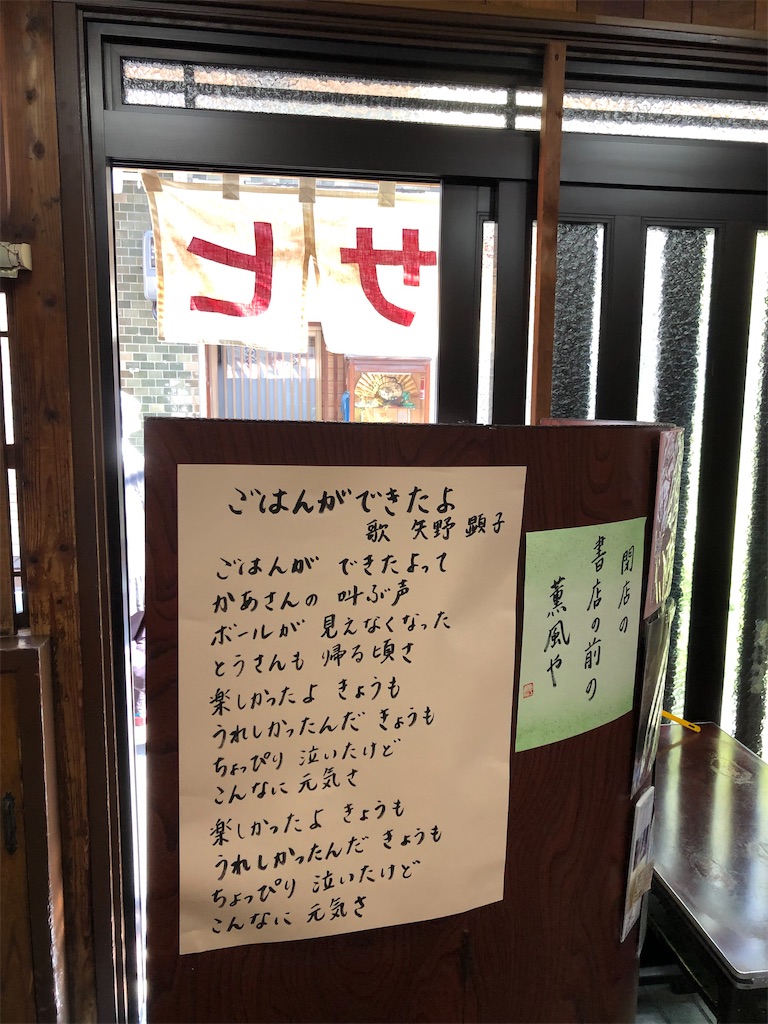 サヒ
ごはんができたよ
歌 矢野 顕子
ごはんが できたよって
かあさんの 叫ぶ声
ボールが 見えなくなった
とうさんも 帰る頃さ
楽しかったよ きょうも
うれしかったんだ きょうも
ちょっぴり 泣いたけど
こんなに 元気さ
楽しかったよ きょうも
うれしかったんだ きょうも
ちょっぴり 泣いたけど
こんなに 元気さ
閉店の
書店の前の
薫風や